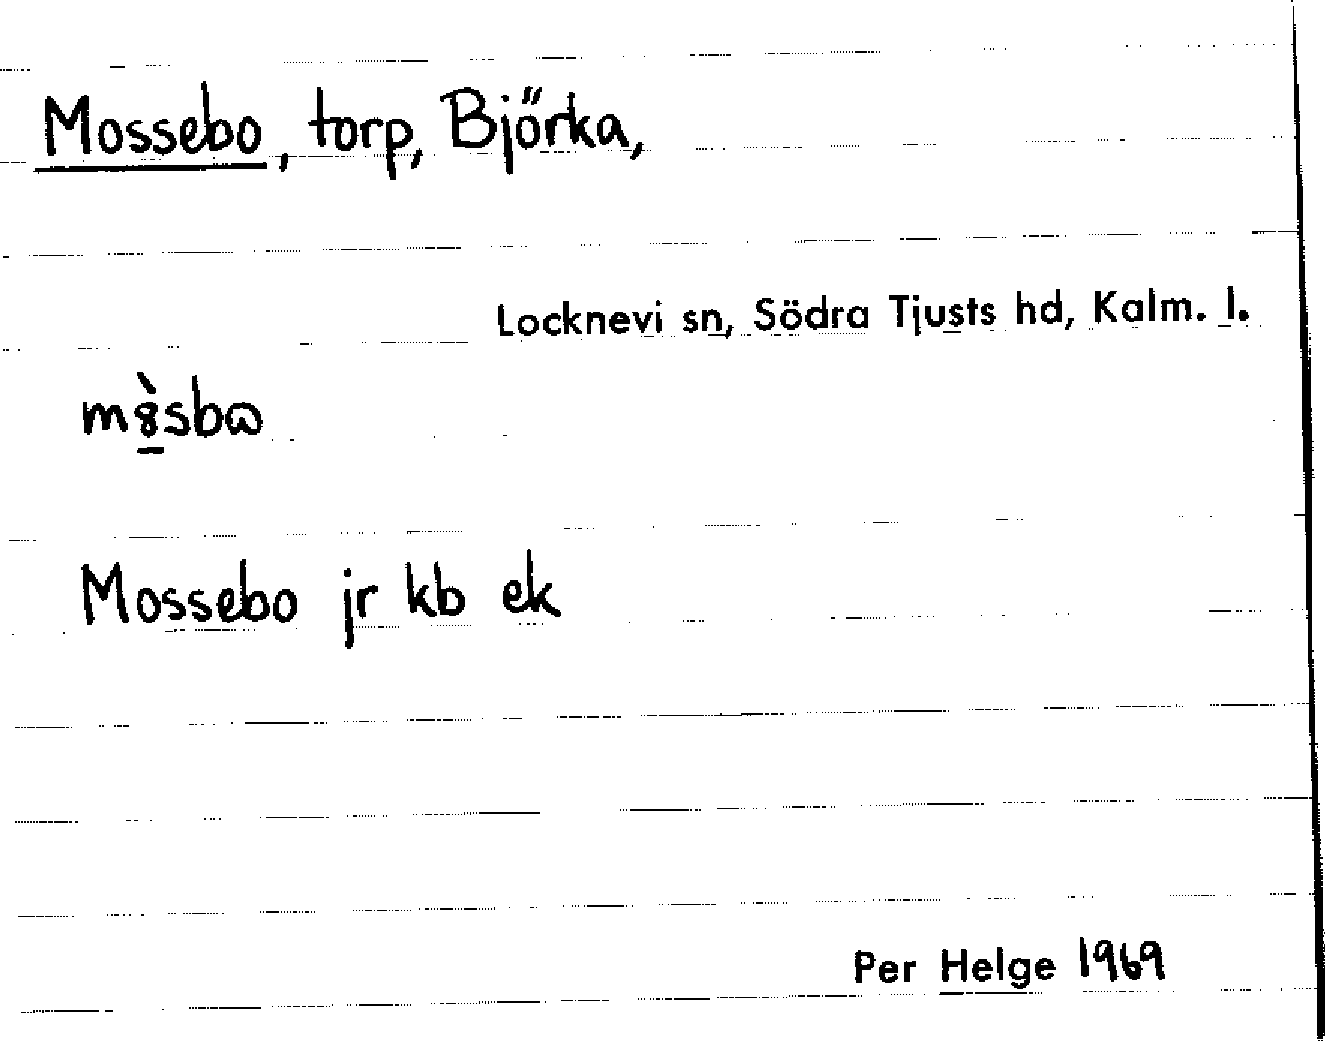 Mossebo, torp, Björka,
Locknevi sn, Södra Tjusts hd, Kalm. l.
m8̱̀sbꞷ
Mossebo jr kb ek
Per Helge 1969